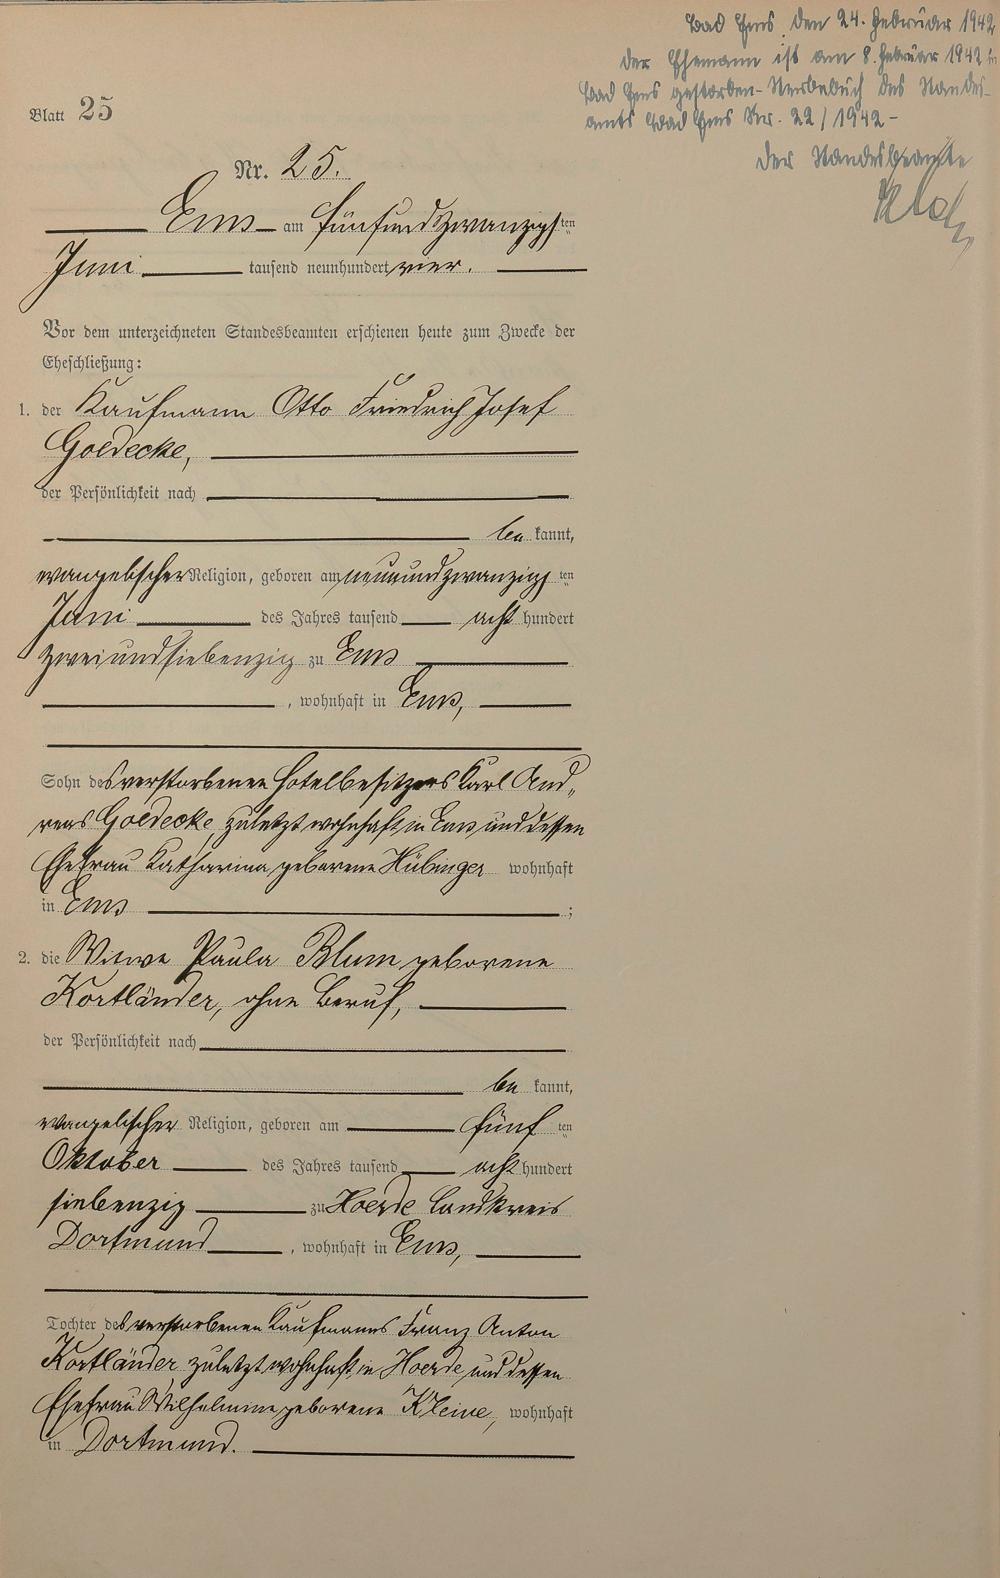 Bad Ems, den 24. Februar 1942
der Ehemann ist am 8. Februar 1942 in
Bad Ems gestorben - Sterbebuch des Standes-
amts Bad Ems Nr. 22/1942 -
Der Standesbeamte
Blatt 25
Nr. 25.
Ems am fünfundzwanzigsten
Juni tausend neunhundert vier.
Vor dem unterzeichneten Standesbeamten erschienen heute zum Zwecke der
Eheschließung:
1. der Kaufmann Otto Friedrich Josef
Goedecke,
der Persönlichkeit nach
be kannt,
evangelischer Religion, geboren am neunundzwanzigsten
Juni des Jahres tausend acht hundert
zweiundsiebenzig zu Ems
, wohnhaft in Ems,
Sohn des verstorbenen Hotelbesitzers Karl And„
reas Goedecke, zuletzt wohnhaft in Ems und dessen
Ehefrau Katharina geborene Hübinger wohnhaft
in Ems ;
2. die Witwe Paula Blum geborene
Kortländer, ohne Beruf,
der Persönlichkeit nach
be kannt,
evangelischer Religion, geboren am fünf ten
Oktober des Jahres tausend acht hundert
siebenzig zu Hoerde Landkreis
Dortmund , wohnhaft in Ems,
Tochter des verstorbenen Kaufmanns Franz Anton
Kortländer, zuletzt wohnhaft in Hoerde, und dessen
Ehefrau Wilhelmine geborene Kleine, wohnhaft
in Dortmund.